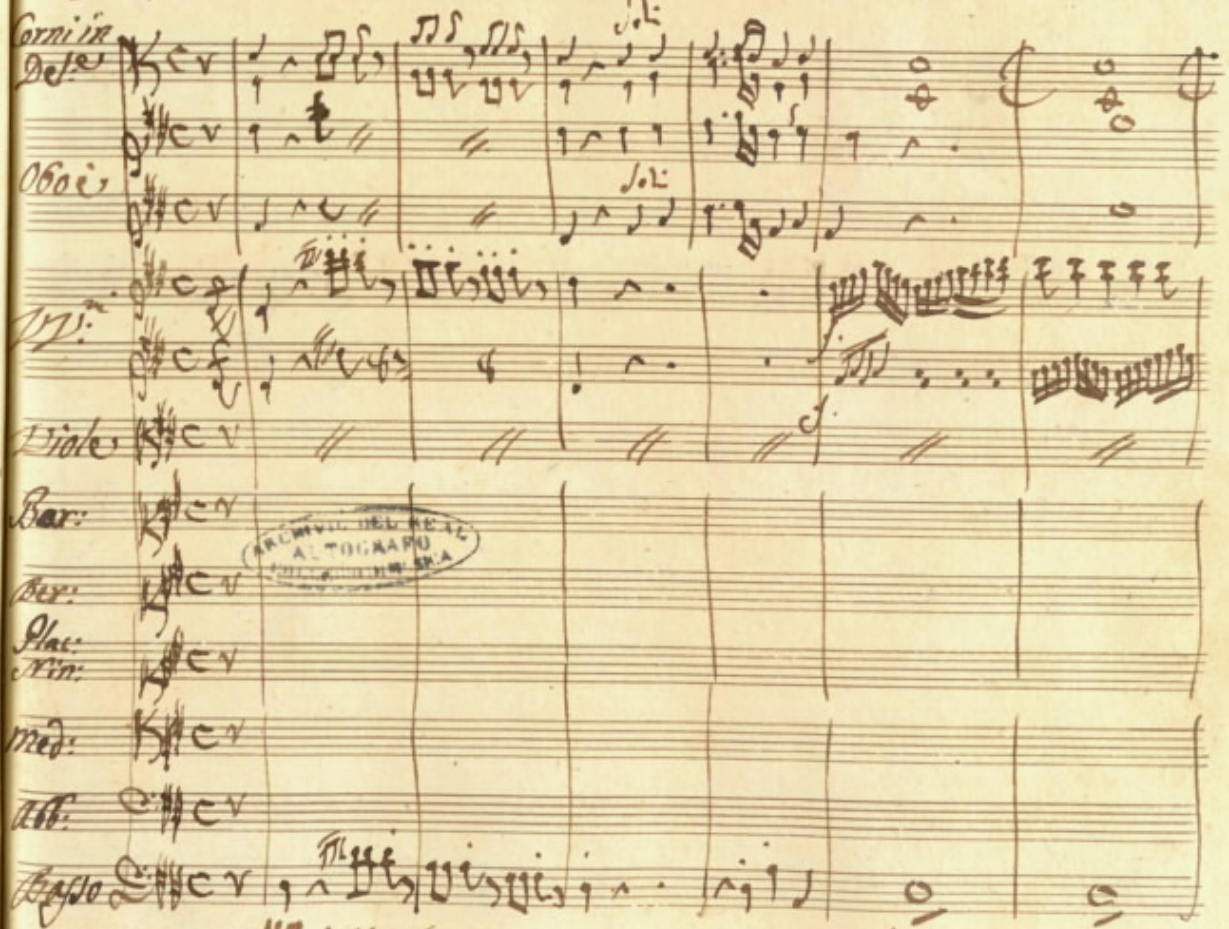 Corni in
Soli
Oboè
Soli
Viole
Bar:
Ber:
Plac:
Nin:
Med:
Abb:
Basso
ARCHIVIO DEL REAL
AUTOGRAFO